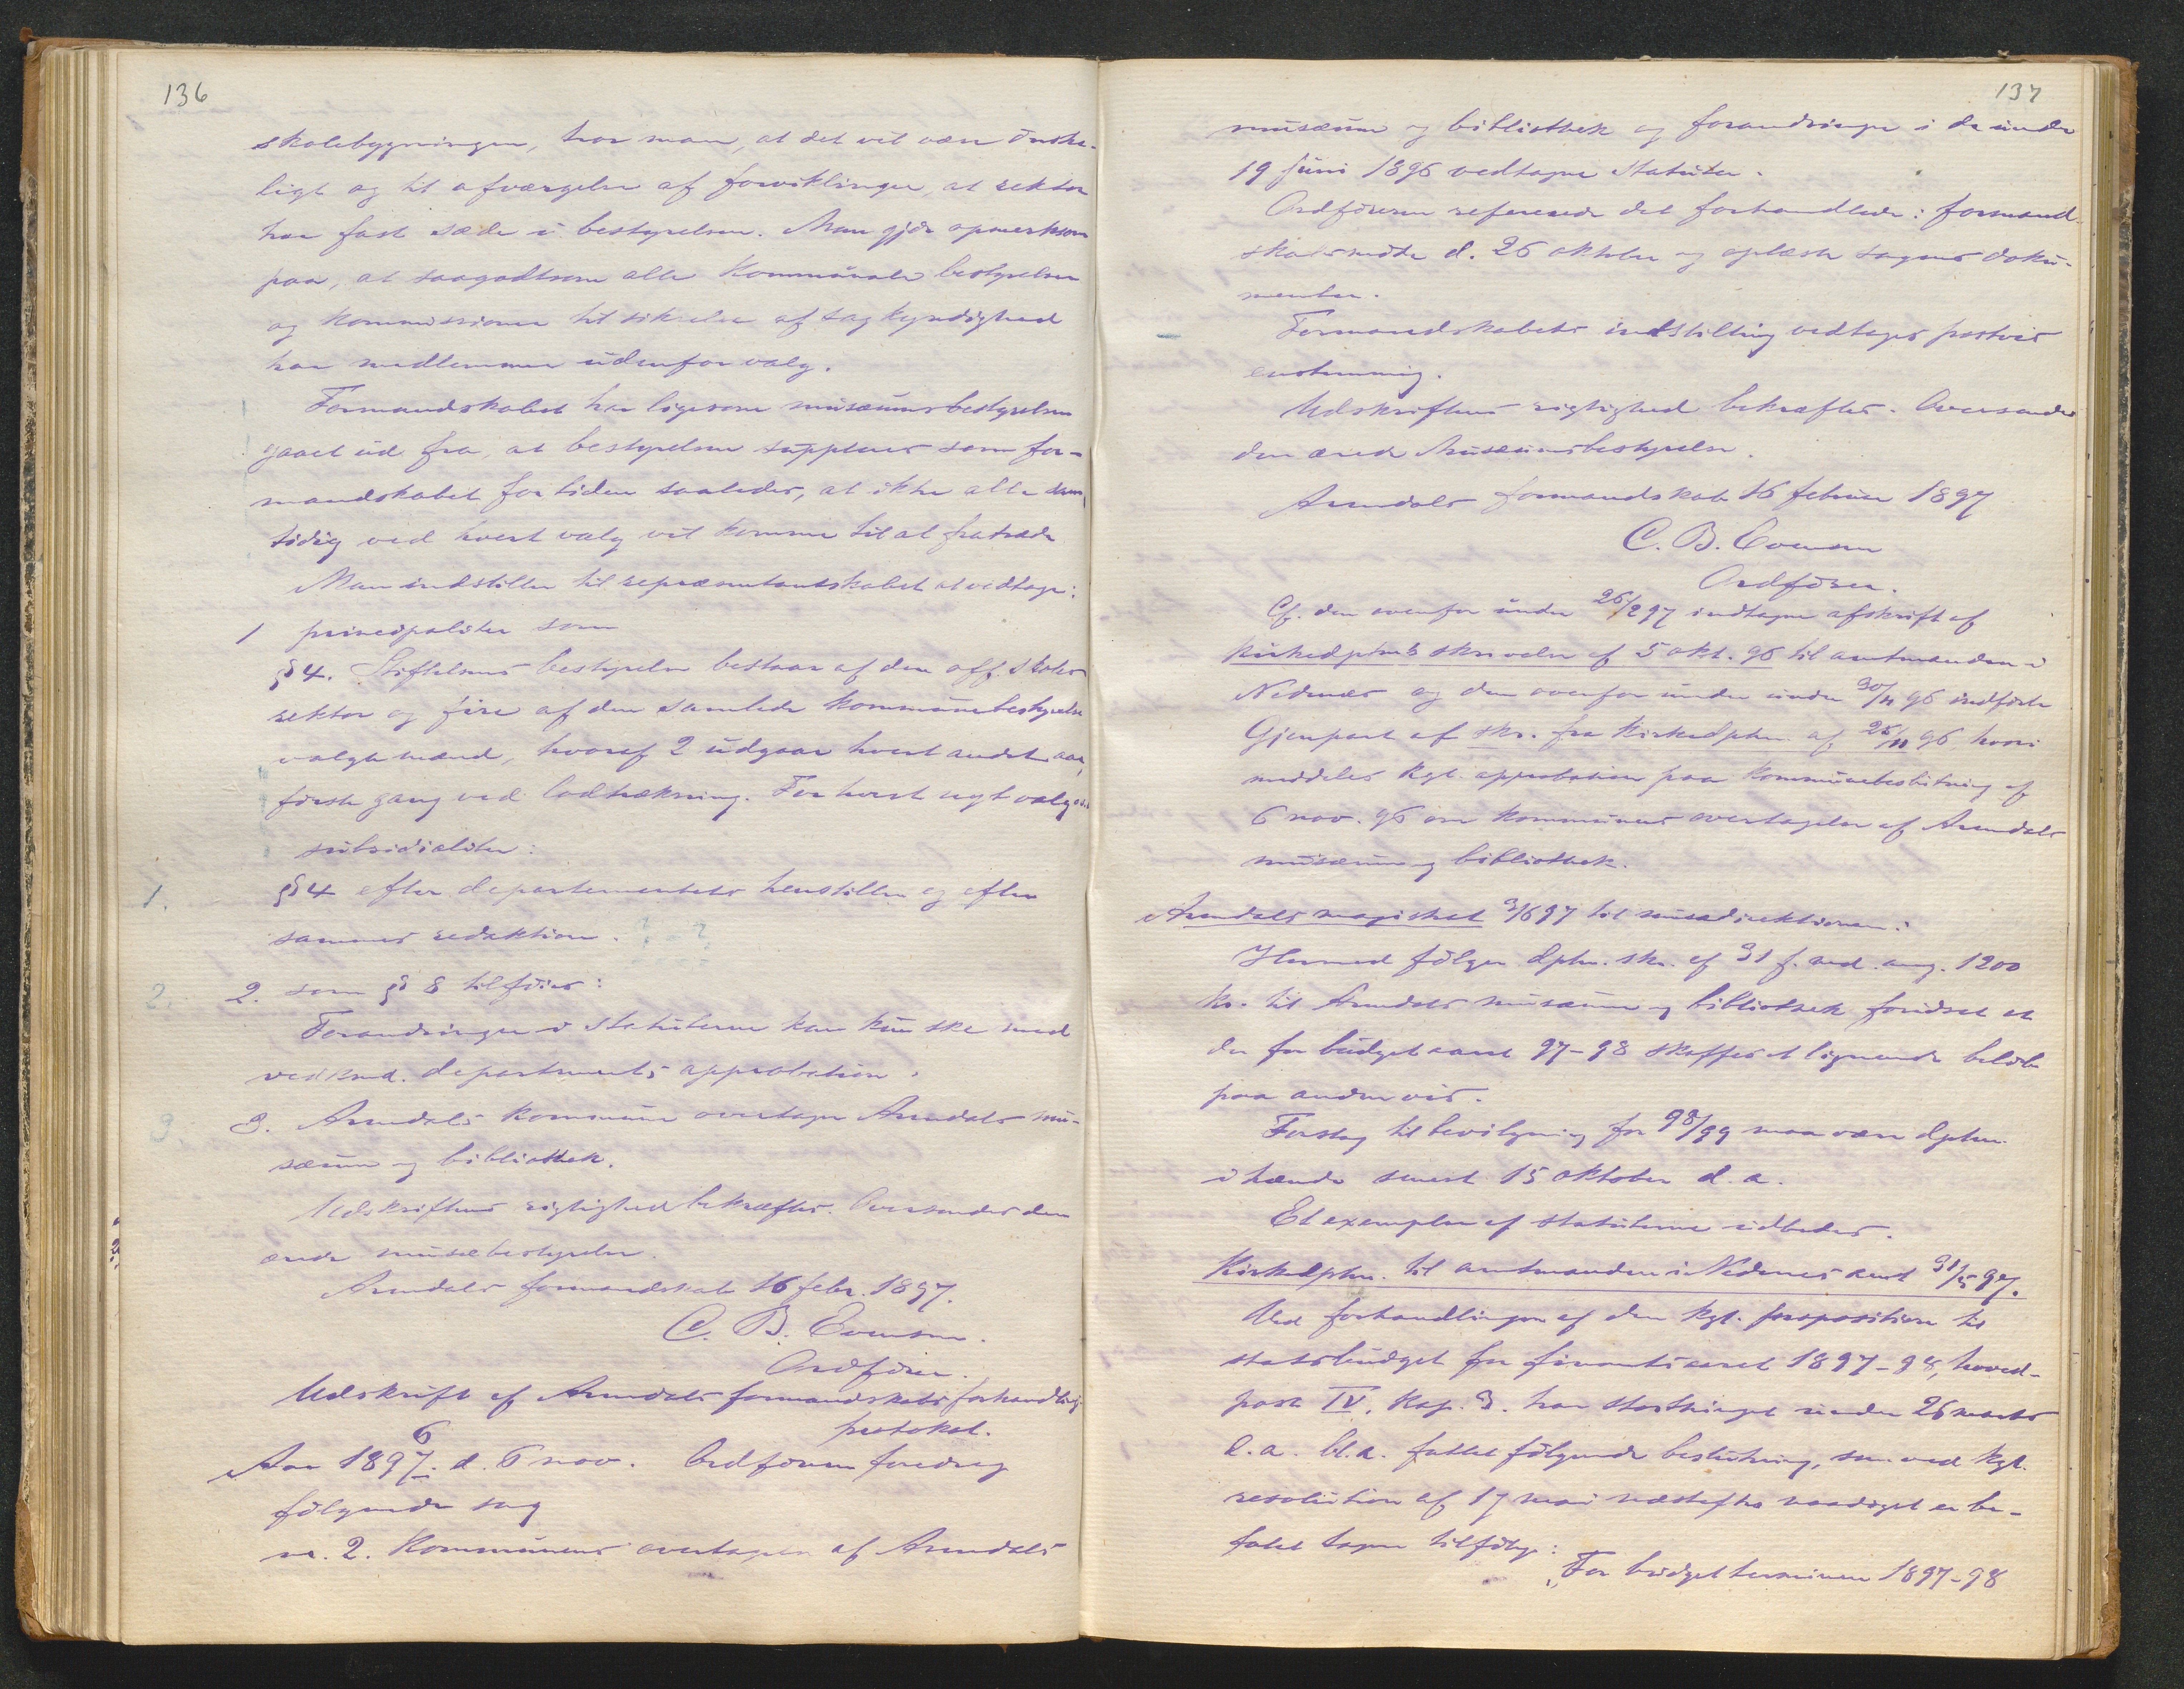 136
skolebygningen, tror man, at det vil være önske-
ligt og til afværgelse af forviklinger, at rektor
har fast sæde i bestyrelsen. Man gjör opmerksom
paa, at saagodtsom alle kommunale bestyrelser
og kommissioner til sikrelse af sagkyndighed
har medlemmer udenfor valg.
Formandskabet har ligesom musæumsbestyrelsen
gaaet ud fra, at bestyrelsen suppleres som for-
mandskabet for tiden saaledes, at ikke alle sam-
tidig ved hvert valg vil komme til at fratræde
Man indstiller til repræsentantskabet at vedtage:
1 principaliter som
§ 4. Stiftelsens bestyrelse bestaar af den off. skoles
rektor og fire af den samlede kommunebestyrelse
valgte mænd, hvoraf 2 udgaar hvert andet aar,
förste gang ved lodtrækning. For hvert nyt valg
subsidialiter:
1. § 4 efter departementets henstillen og efter
sammes redaktion.
2. 2. som § 8 tilföies:
Forandringer i statuterne kan kun ske med
vedkmd. departments approbation.
3. 3. Arendals kommune overtager Arendals mu-
sæum og bibliothek.
Udskriftens rigtighed bekræftes. Oversendes den
ærede musæbestyrelse.
Arendals formandskab 16 febr. 1897.
C. B. Evensen.
Ordförer.
Udskrift af Arendals formandskabs forhandlings-
protokol.
6
Aar 1897. d. 6 nov. Ordföreren foredrog
fölgende sag
no. 2. Kommunens overtagelse af Arendals
137
musæum og bibliothek og forandringer i de under
19 Juni 1896 vedtagne Statuter.
Ordföreren refererede det forhandlede i formand-
skabsmöte d. 26 oktober og oplæste sagens doku-
menter.
Formandskabets indstilling vedtages postvis
enstemmig.
Udskriftens rigtighed bekræftes. Oversendes
den ærede Musæumsbestyrelse.
Arendals formandskab 16 februar 1897
C. B. Evensen
Ordförer.
Cf. den ovenfor under 26/2 97 indtagne afskrift af
Kirkedptmts skrivelse af 5 okt. 96 til amtmanden i
Nedenæs og den ovenfor under under 30/11 96 indförte
Gjenpart af skr. fra Kirkedptm. af 25/11 96 hvori
meddeles kgl. approbation paa kommunebeslutning af
6 nov. 96 om kommunens overtagelse af Arendals
musæum og bibliothek.
Arendals magistrat 3/6 97 til musedirektionen:
Hermed fölger dptm. skr. af 31 f. md. ang. 1200
kr. til Arendals musæum og bibliothek forudsat at
der for budgetaaret 97-98 skaffes et lignende belöb
paa anden vis.
Forslag til bevilgning for 98/99 maa være dptm.
i hænde senest 15 oktober d. a.
Et exemplar af statuterne udbedes.
Kirkedptm. til amtmanden i Nedenes amt 31/5 97.
Ved forhandlingen af den kgl. proposition til
statsbudget for finantsaaret 1897-98, hoved-
post IV, kap. 3. har storthinget under 26 marts
d. a. bl. a. fattet fölgende beslutning, som ved kgl.
resolution af 17 mai næstefter naadigst er be-
falet tagen tilfölge:
"For budgetterminen 1897-98